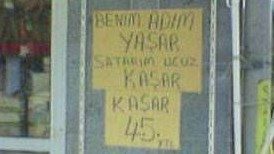 BENİM ADIM
YAŞAR
SATARIM UCUZ
KAŞAR
KAŞAR
45.YTL